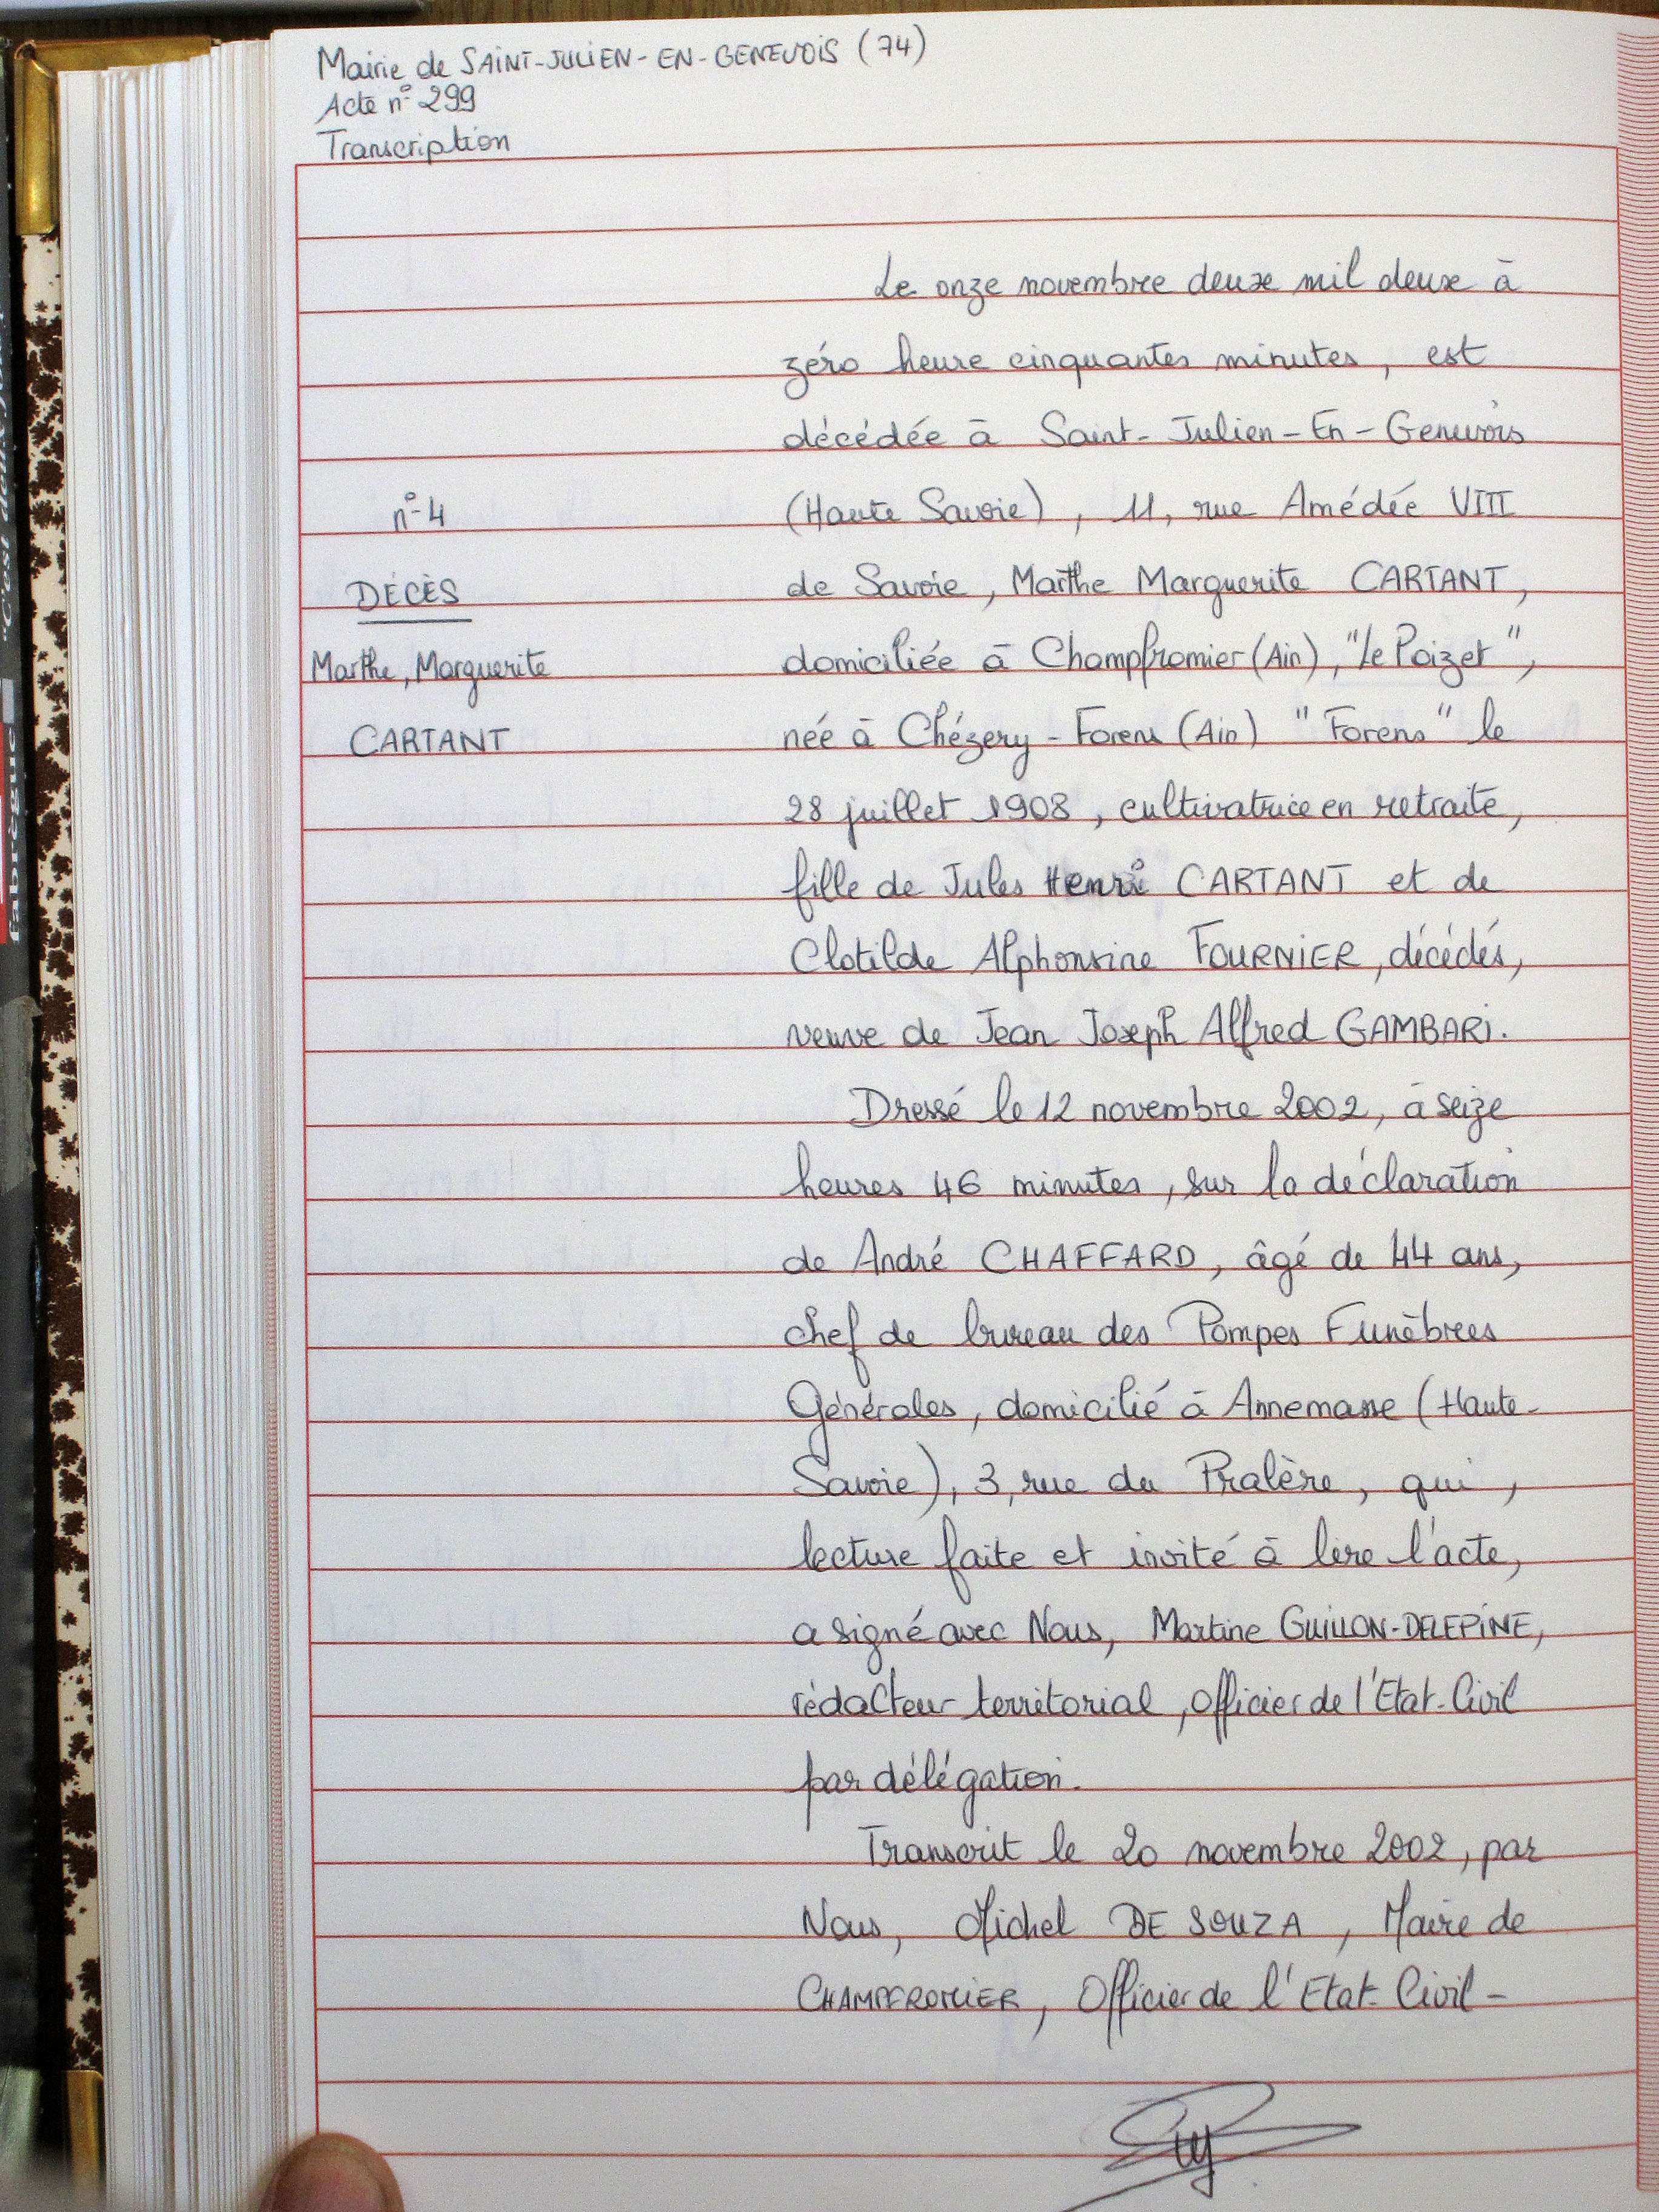 Mairie de SAINT-JULIEN-EN-GENEVOIS (74)
Acte n° 299
Transcription
Le onze novembre deux mil deux à
zéro heure cinquantes minutes, est
décédée à Saint-Julien-En-Genevois
n°4
(Haute Savoie), 11, rue Amédée VIII
DÉCÈS
de Savoie, Marthe Marguerite CARTANT,
Marthe, Marguerite
domiciliée à Champfromier (Ain), "Le Poizet",
CARTANT
née à Chézery-Forens (Ain) "Forens" le
28 juillet 1908, cultivatrice en retraite,
fille de Jules Henri CARTANT et de
Clotilde Alphonsine FOURNIER, décédés,
veuve de Jean Joseph Alfred GAMBARI.
Dressé le 12 novembre 2002, à seize
heures 46 minutes, sur la déclaration
de André CHAFFARD, âgé de 44 ans,
chef de bureau des Pompes Funèbres
Générales, domicilié à Annemasse (Haute-
Savoie), 3, rue du Pralère, qui,
lecture faite et invité à lire l'acte,
a signé avec Nous, Martine GUILLON-DELEPINE,
rédacteur territorial, officier de l'Etat-Civil
par délégation.
Transcrit le 20 novembre 2002, par
Nous, Michel DE SOUZA, Maire de
CHAMPFROMIER, Officier de l'Etat-Civil-
fabrègue